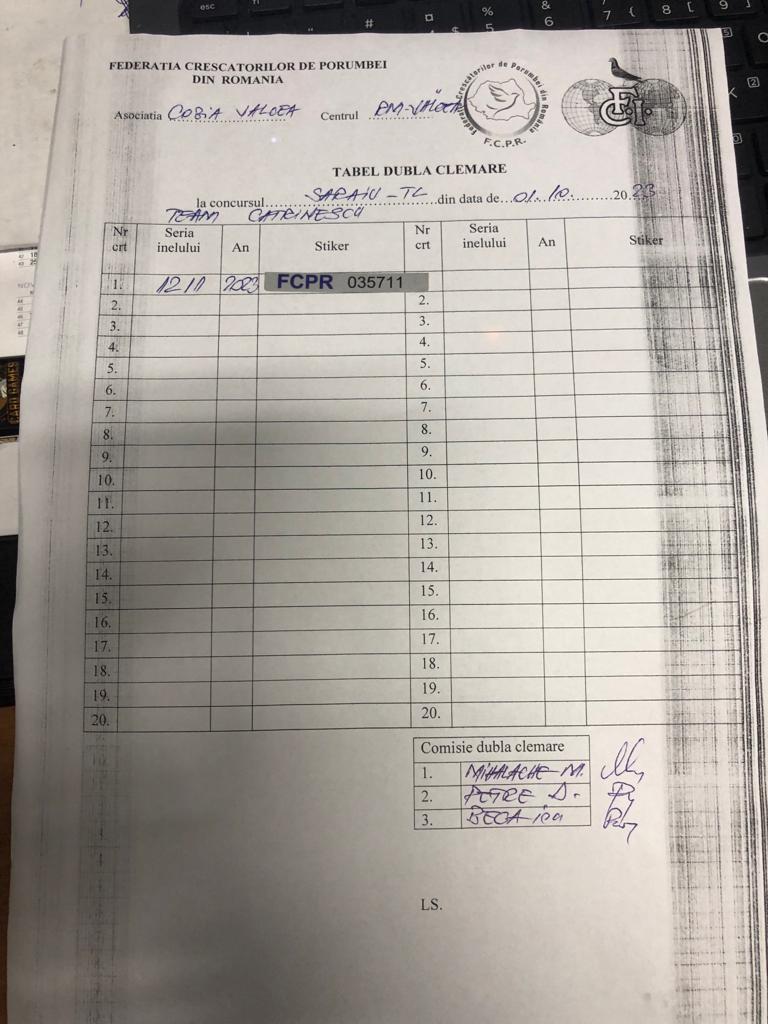 FEDERATIA CRESCATORILOR DE PORUMBEI
DIN ROMANIA
Asociatia COBIA VALCEA Centrul RM-VALCEA
Federatia Crescătorilor de Porumbei din România
F.C.P.R.
F.C.I.
TABEL DUBLA CLEMARE
la concursul SARAIU-TL din data de 01.10. 2023
TEAM CATRINESCU
Nr crt Seria inelului An Stiker Nr crt Seria inelului An Stiker
1. 1211 2023 FCPR 035711
2. 2.
3. 3.
4. 4.
5. 5.
6. 6.
7. 7.
8. 8.
9. 9.
10. 10.
11. 11.
12. 12.
13. 13.
14. 14.
15. 15.
16. 16.
17. 17.
18. 18.
19. 19.
20. 20.
Comisie dubla clemare
1. MIHALACHE M.
2. PETRE D.
3. BECA ion
LS.